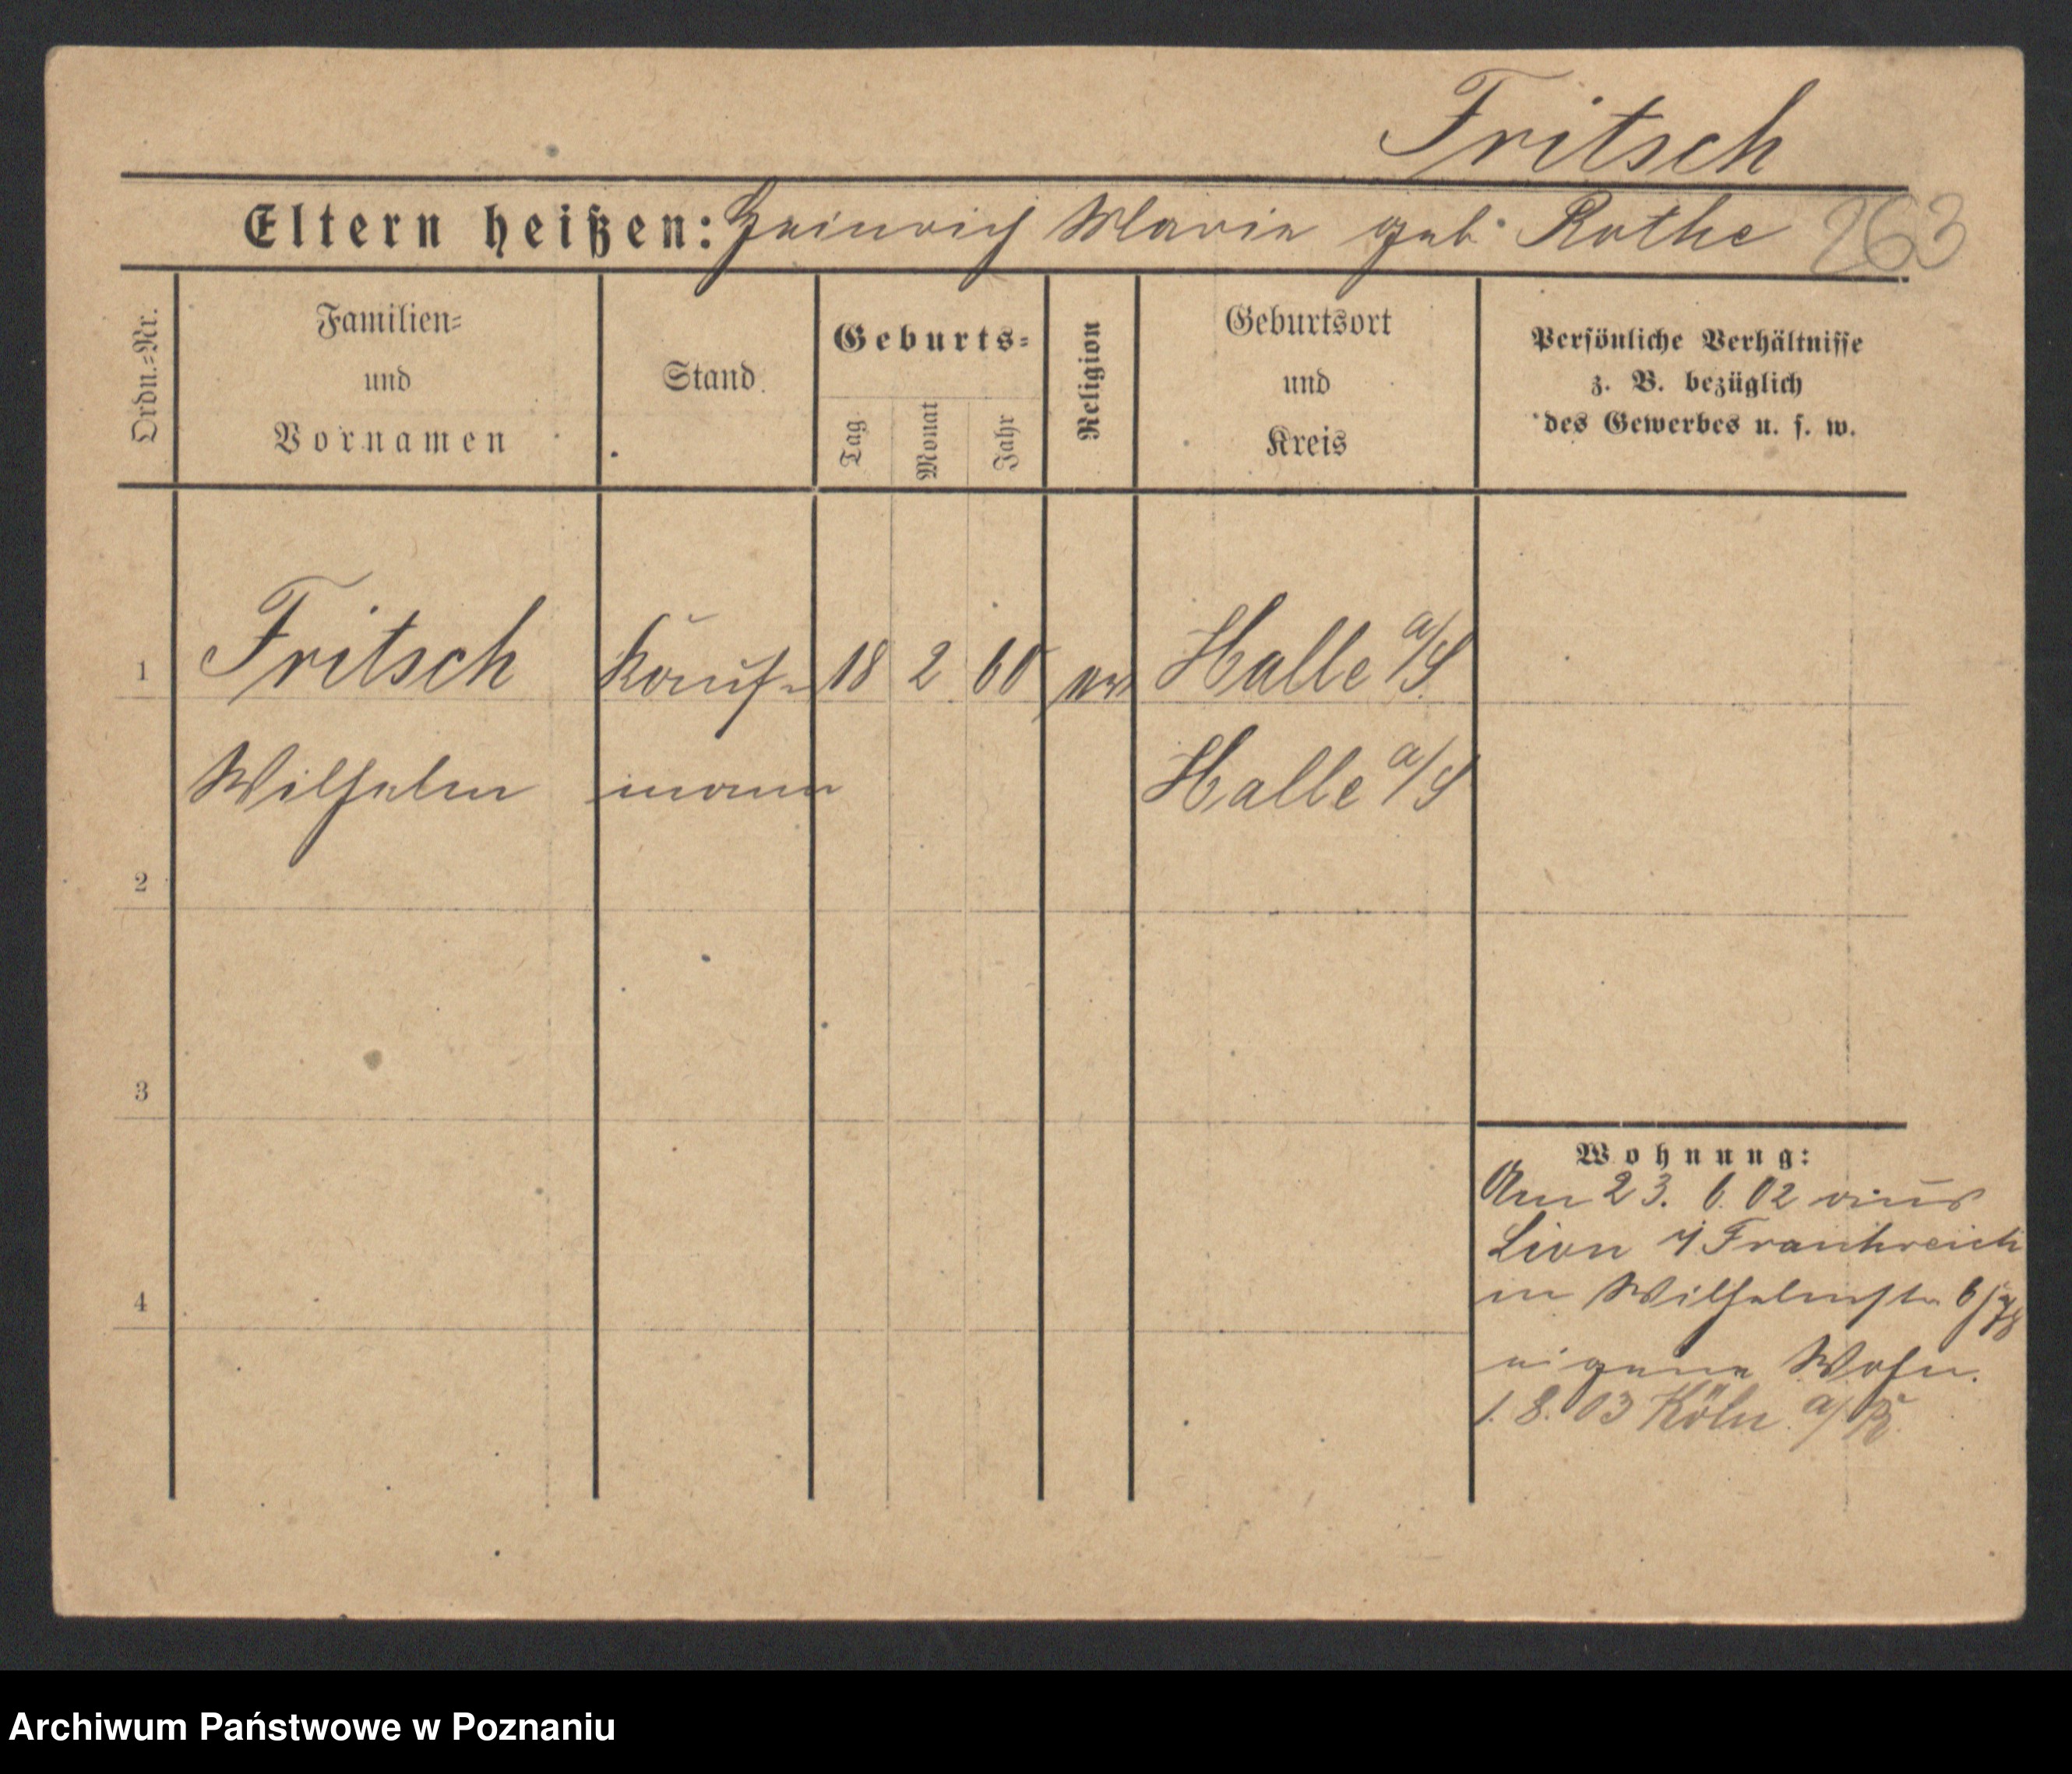 Fritsch
Eltern heißen: Heinrich Marie geb. Rothe 263
Ordn.-Nr.
Familien-
und
Vornamen
Stand
Geburts-
Tag
Monat
Jahr
Religion
Geburtsort
und
Kreis
Persönliche Verhältnisse
z. B. bezüglich
des Gewerbes u. s. w.
1 Fritsch Kauf- 18 2 60 ev Halle a/S.
Wilhelm mann Halle a/S
2
3
4
Wohnung:
Am 23. 6. 02 aus
Lion i/Frankreich
n Wilhelmstr. 6/7/8
eigene Wohn.
1. 8. 03 Köln a/R.
Archiwum Państwowe w Poznaniu